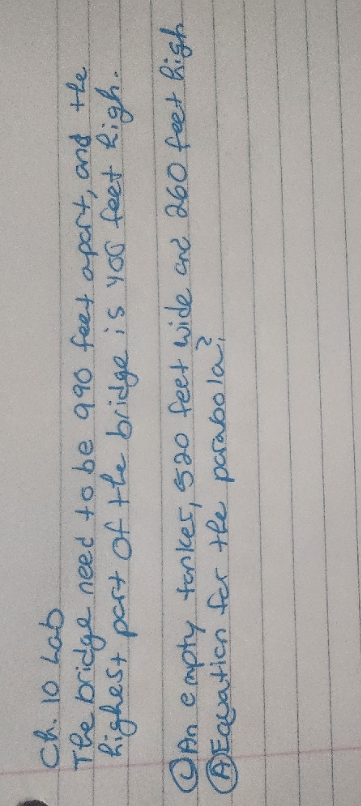 Ch. 10 Lab
The bridge need to be 990 feet apart, and the
highest part of the bridge is 400 feet high.
① An empty tanker, 520 feet wide and 260 feet high
Ⓐ Equation for the parabola?